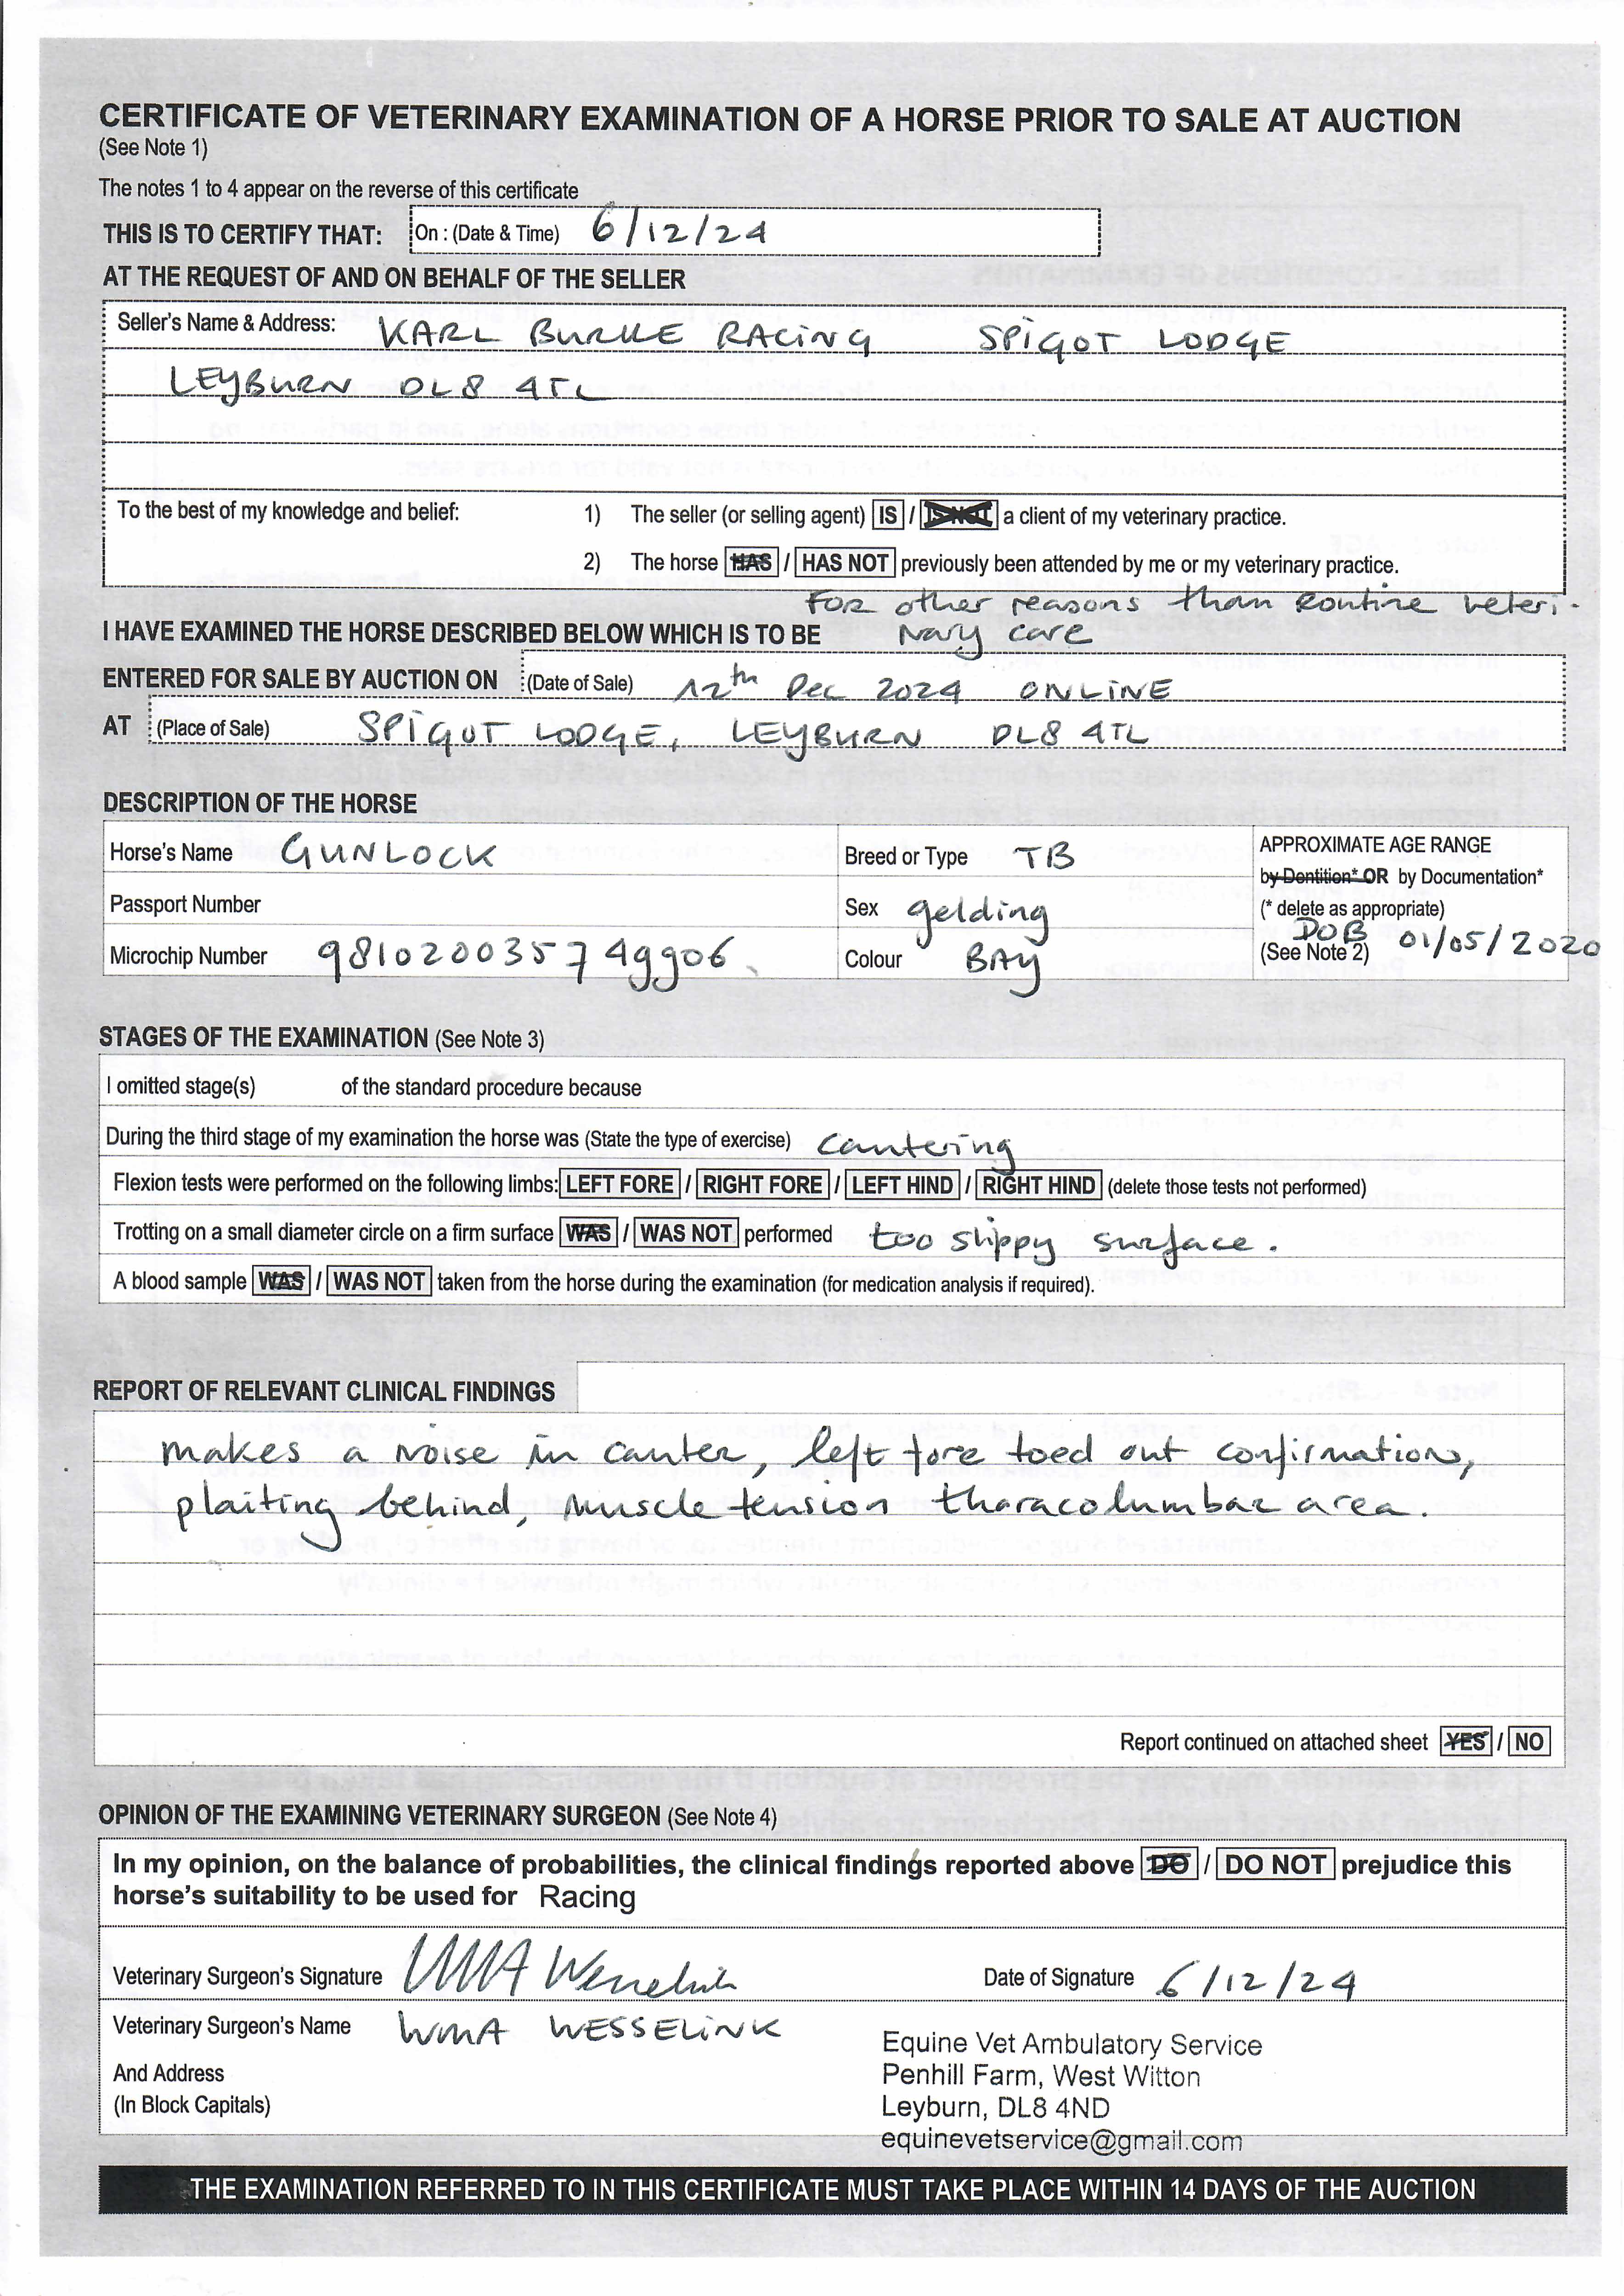 CERTIFICATE OF VETERINARY EXAMINATION OF A HORSE PRIOR TO SALE AT AUCTION
(See Note 1)
The notes 1 to 4 appear on the reverse of this certificate
THIS IS TO CERTIFY THAT: On : (Date & Time) 6/12/24
AT THE REQUEST OF AND ON BEHALF OF THE SELLER
Seller's Name & Address: KARL BURKE RACING SPIGOT LODGE
LEYBURN DL8 4TL
To the best of my knowledge and belief: 1) The seller (or selling agent) IS / IS NOT a client of my veterinary practice.
2) The horse HAS / HAS NOT previously been attended by me or my veterinary practice.
For other reasons than Routine veteri-
I HAVE EXAMINED THE HORSE DESCRIBED BELOW WHICH IS TO BE nary care
ENTERED FOR SALE BY AUCTION ON (Date of Sale) 12th Dec 2024 ONLINE
AT (Place of Sale) SPIGOT LODGE, LEYBURN DL8 4TL
DESCRIPTION OF THE HORSE
Horse's Name GUNLOCK Breed or Type TB APPROXIMATE AGE RANGE
by Dentition* OR by Documentation*
Passport Number Sex gelding (* delete as appropriate)
DOB 01/05/2020
Microchip Number 981020035749906 Colour BAY (See Note 2)
STAGES OF THE EXAMINATION (See Note 3)
I omitted stage(s) of the standard procedure because
During the third stage of my examination the horse was (State the type of exercise) cantering
Flexion tests were performed on the following limbs: LEFT FORE / RIGHT FORE / LEFT HIND / RIGHT HIND (delete those tests not performed)
Trotting on a small diameter circle on a firm surface WAS / WAS NOT performed too slippy surface.
A blood sample WAS / WAS NOT taken from the horse during the examination (for medication analysis if required).
REPORT OF RELEVANT CLINICAL FINDINGS
makes a noise in canter, left fore toed out confirmation,
plaiting behind, muscle tension tharacolumbar area.
Report continued on attached sheet YES / NO
OPINION OF THE EXAMINING VETERINARY SURGEON (See Note 4)
In my opinion, on the balance of probabilities, the clinical findings reported above DO / DO NOT prejudice this
horse's suitability to be used for Racing
Veterinary Surgeon's Signature WMA Wesselink Date of Signature 6/12/24
Veterinary Surgeon's Name WMA WESSELINK
And Address
(In Block Capitals)
Equine Vet Ambulatory Service
Penhill Farm, West Witton
Leyburn, DL8 4ND
equinevetservice@gmail.com
THE EXAMINATION REFERRED TO IN THIS CERTIFICATE MUST TAKE PLACE WITHIN 14 DAYS OF THE AUCTION